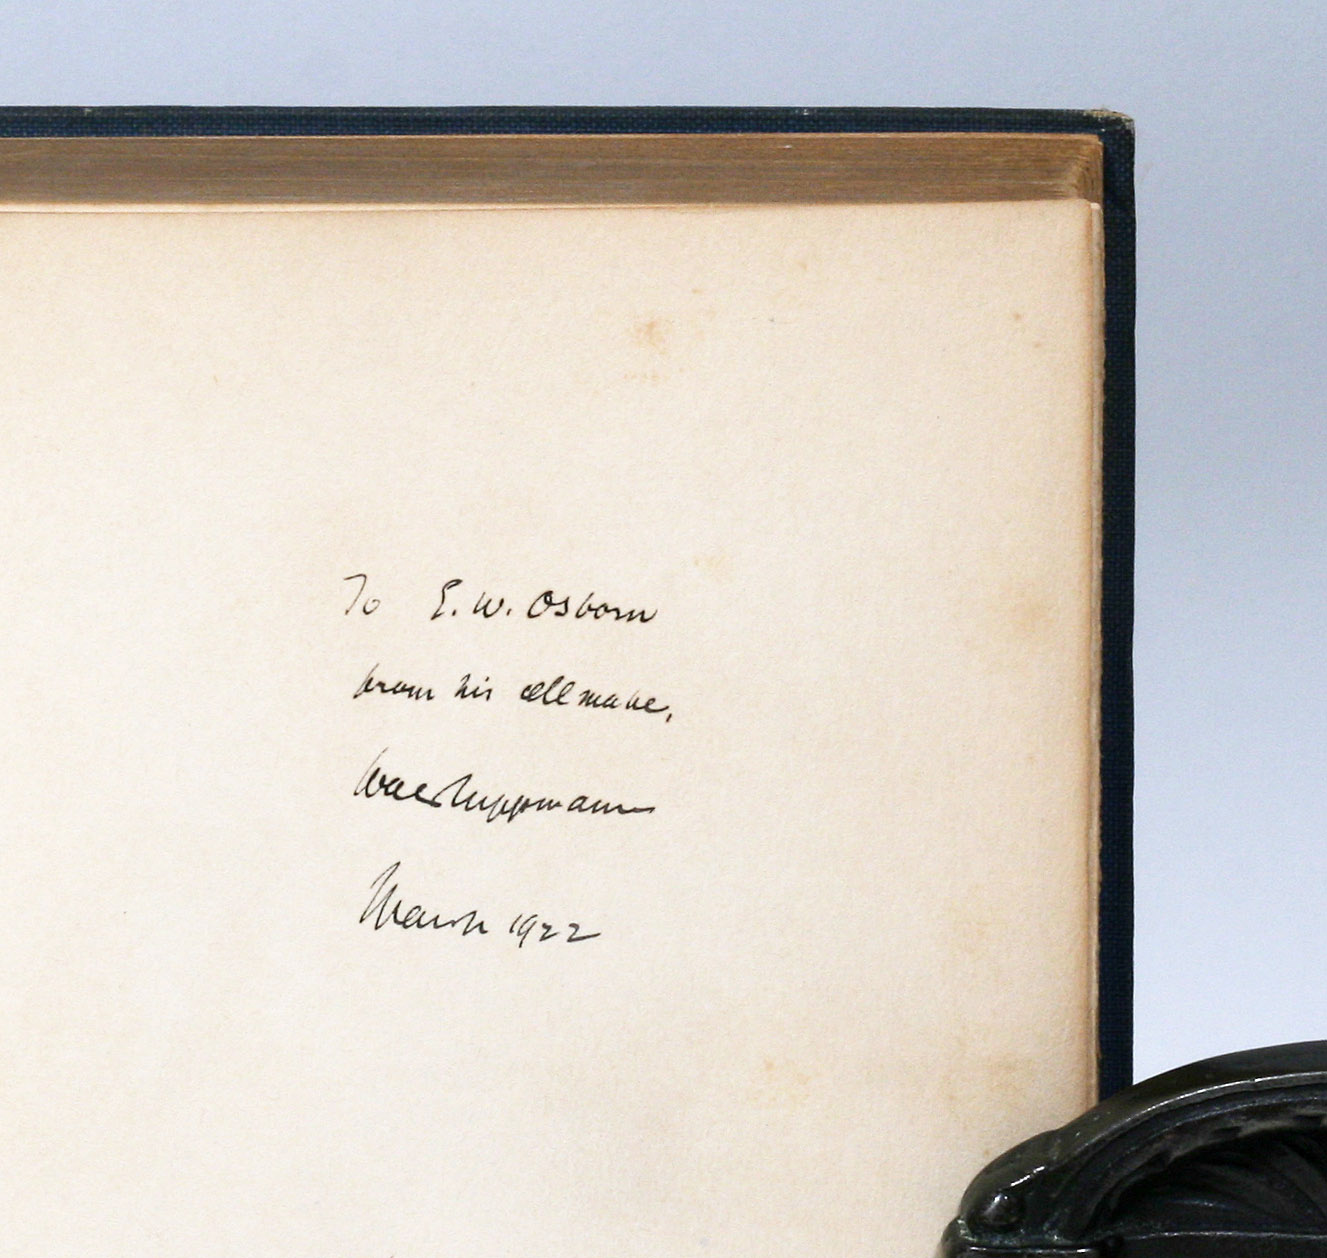 To E. W. Osborn
from his cell mate,
Walter Lippmann
March 1922